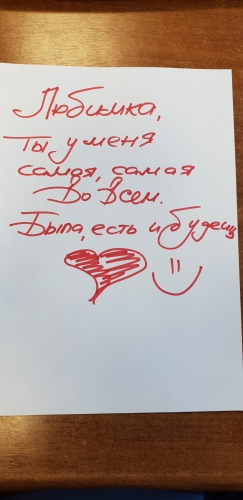 Любимка,
Ты у меня
самая, самая
Во Всем.
Была, есть и будешь